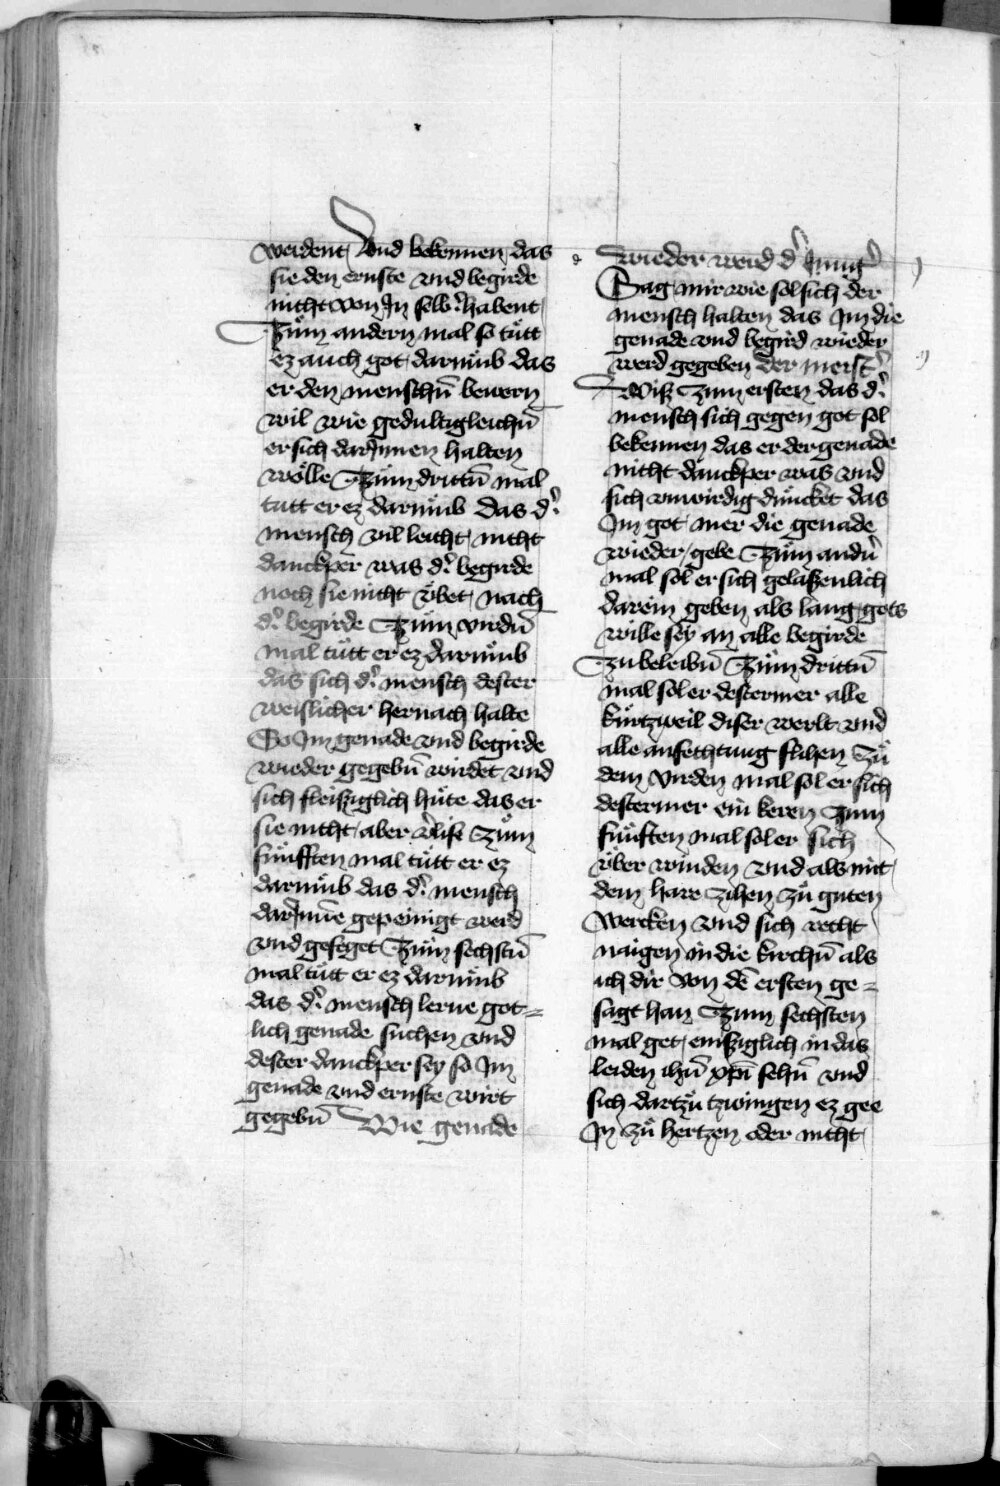 werdent Vnd bekennen das
sie den ernste vnd begirde
nicht von In selbˀ habent
Zum andern mal so tůtt
ez auch got darmůb das
er den menschn̄ bewern
wil wie gedultigleichn̄
er sich darInnen halten
wölle Zům drittn̄ mal
tutt er ez darmůb das dˀ
mensch vil leicht nicht
danckper was dˀ begirde
noch sie nicht vͤbet nach
dˀ begirde Zům virdn̄
mal tůtt er ez darmůb
das sich dˀ mensch dester
weislicher hernach halte
So Im genade vnd begirde
wieder gegebn̄ wirdet vnd
sich fleisziglich hůte das er
sie nicht aber vˀlise Zům
fůnfften mal tůtt er ez
darmůb das dˀ mensch
darInne gepeinigt werd
vnd gefeget Zům sechstn̄
mal tůtt er ez darmůb
das dˀ mensch lerne got=
lich genade suchen vnd
dester danckper sey so Im
genade vnd ernste wirt
gegebn̄ Wie genade
wieder werd dˀ Jungˀ
Sag mir wie sol sich der
mensch halten das Im die
genade vnd begird wieder
werd gegeben der meistˀ
Wisz Zum ersten das dˀ
mensch sich gegen got sol
bekennen das er der genade
nicht danckper was vnd
sich vnwirdig duncket das
Im got mer die genade
wieder gebe Zům andˀn
mal sol er sich gelaszenlich
darein geben als lang gots
wille sey an alle begirde
Zu beleibn̄ Zům drittn̄
mal sol er destermer alle
kurtzweil diser werlt vnd
alle anfechtung flihen Zů
dem virden mal sol er sich
destermer ein keren Zum
fůnften mal sol er sich
vͤber winden vnd als mit
dem hare zihen zů guten
Wercken vnd sich recht
naigen in die kirchn̄ als
ich dir von dē ersten ge=
sagt han Zum sechsten
mal get emsziglich in das
leiden ihū xp̄i sehn̄ vnd
sich dartzů tzwingen ez gee
In zů hertzen oder nicht